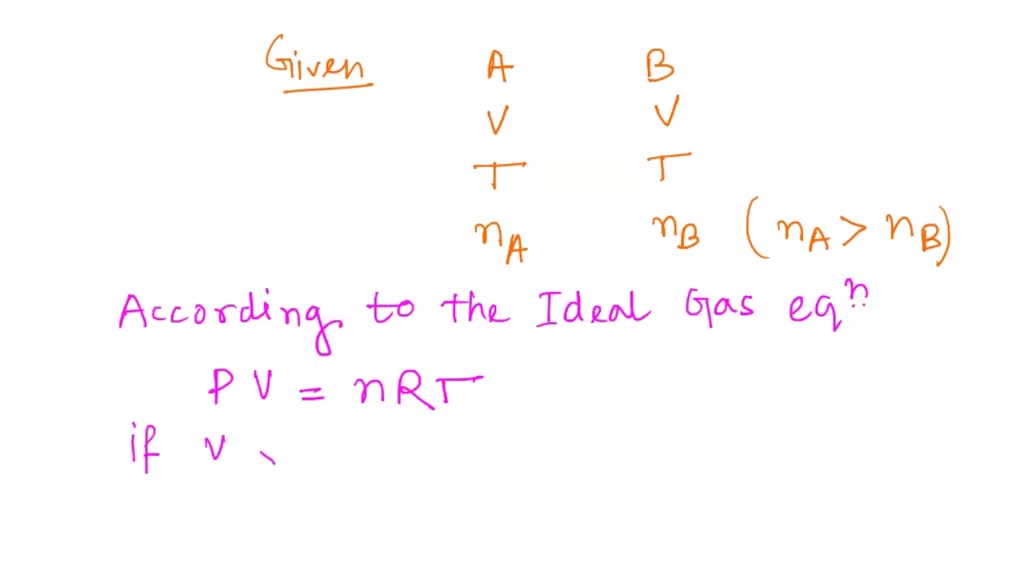 Given A B
V V
T T
nA nB (nA > nB)
According to the Ideal Gas eqn
PV = nRT
if V,